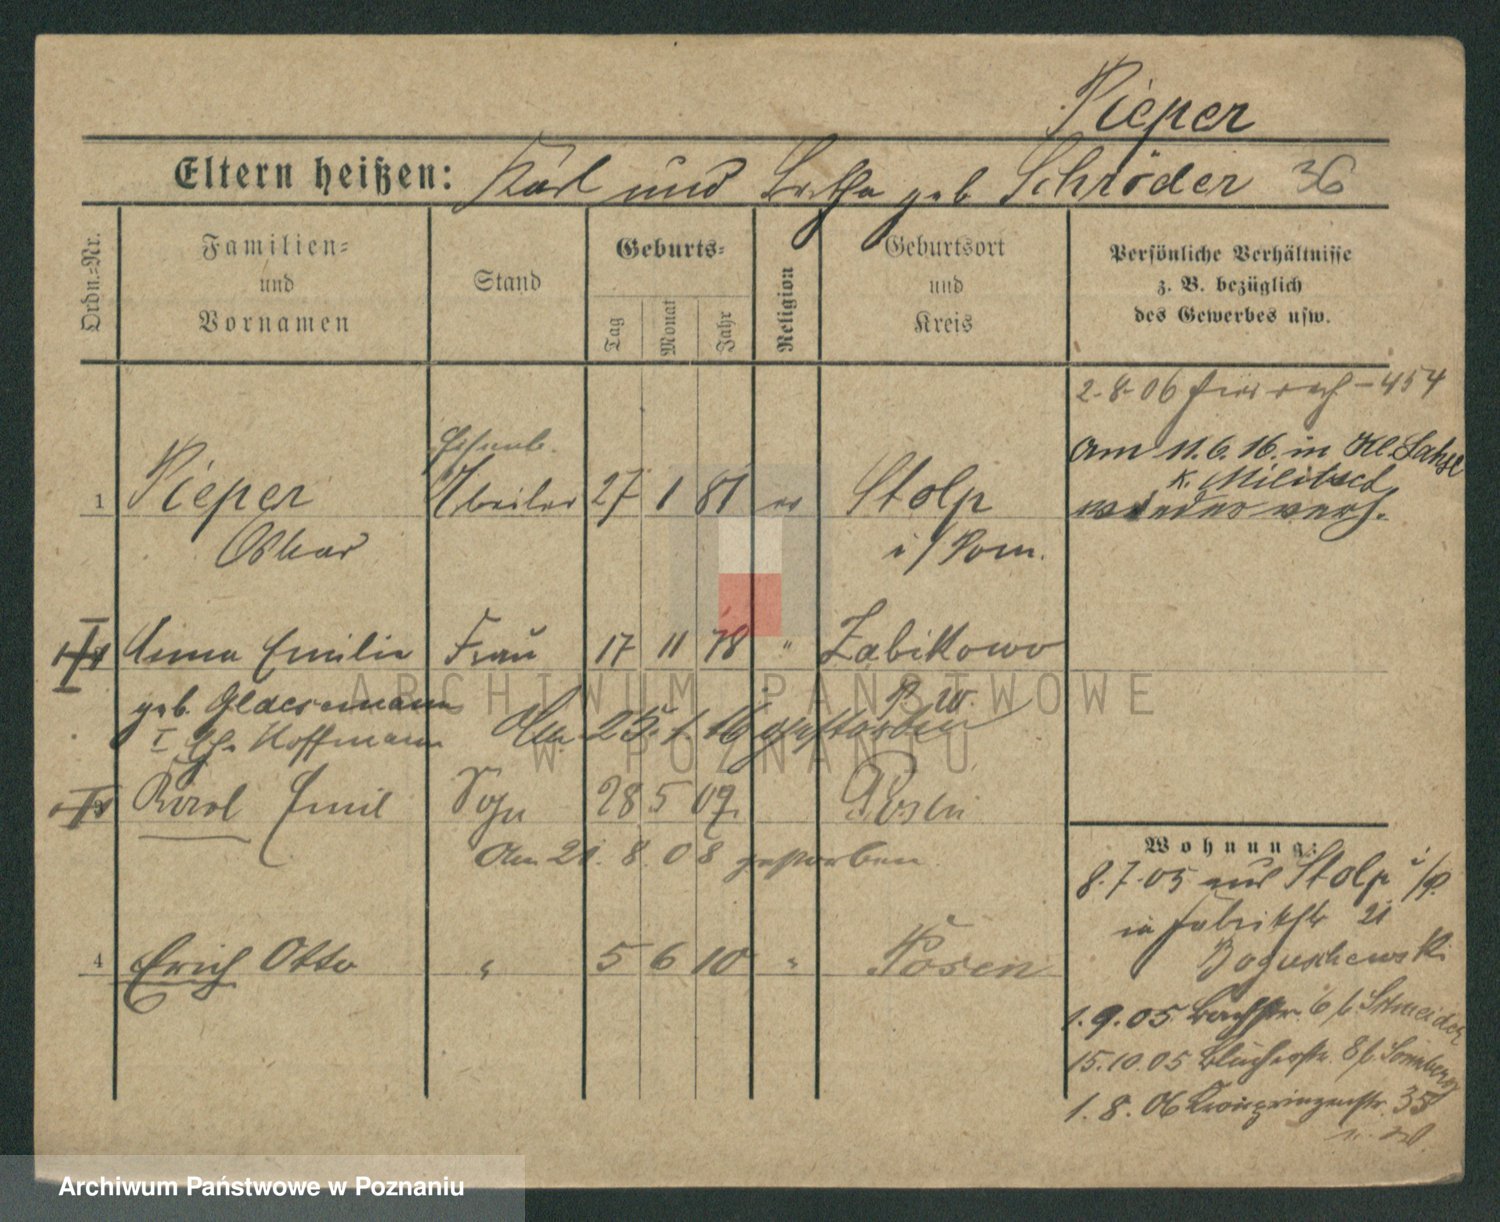 Pieper
Eltern heißen: Karl und Bertha geb Schröder 36
Ordn.=Nr.
Familien=
und
Vornamen
Stand
Geburts=
Tag
Monat
Jahr
Religion
Geburtsort
und
Kreis
Persönliche Verhältnisse
z. B. bezüglich
des Gewerbes usw.
2-8-06 454
Am 11.6.16. in Kl.
K. Militsch
wieder verh.
1 Pieper Arbeiter 27 1 81 ev Stolp
Oskar i/Pom.
Anna Emilie Frau 17 11 78 " Zabikowo
geb. Glaesemann P. W.
I Ehe Hoffmann Am 25. 1. 16 gestorben
Karol Emil Sohn 28 5 07. Posen
Am 21. 8. 08 gestorben
4 Erich Otto " 5 6 10 " Posen
Wohnung:
8.7.05 aus Stolp i/P.
in Fabrikstr 21
Boguschewski
1.9.05 Bachstr. 6 b. Schneider
15.10.05 Blücherstr. 8 b. Sonnberg
1.8.06 Kronprinzenstr. 35
ARCHIWUM PAŃSTWOWE
W POZNANIU
Archiwum Państwowe w Poznaniu